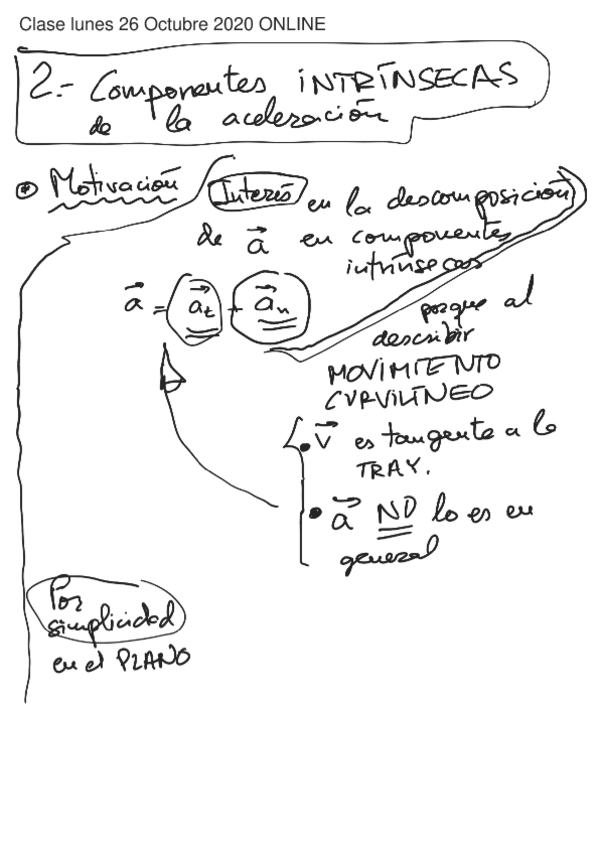 Clase lunes 26 Octubre 2020 ONLINE
2.- Componentes INTRÍNSECAS
de la aceleración
Motivación Interés en la descomposición
de a⃗ en componentes
intrínsecas
a⃗ = a⃗t + a⃗n
porque al
describir
MOVIMIENTO
CURVILÍNEO
• v⃗ es tangente a la
TRAY.
• a⃗ NO lo es en
general
Por
simplicidad
en el PLANO